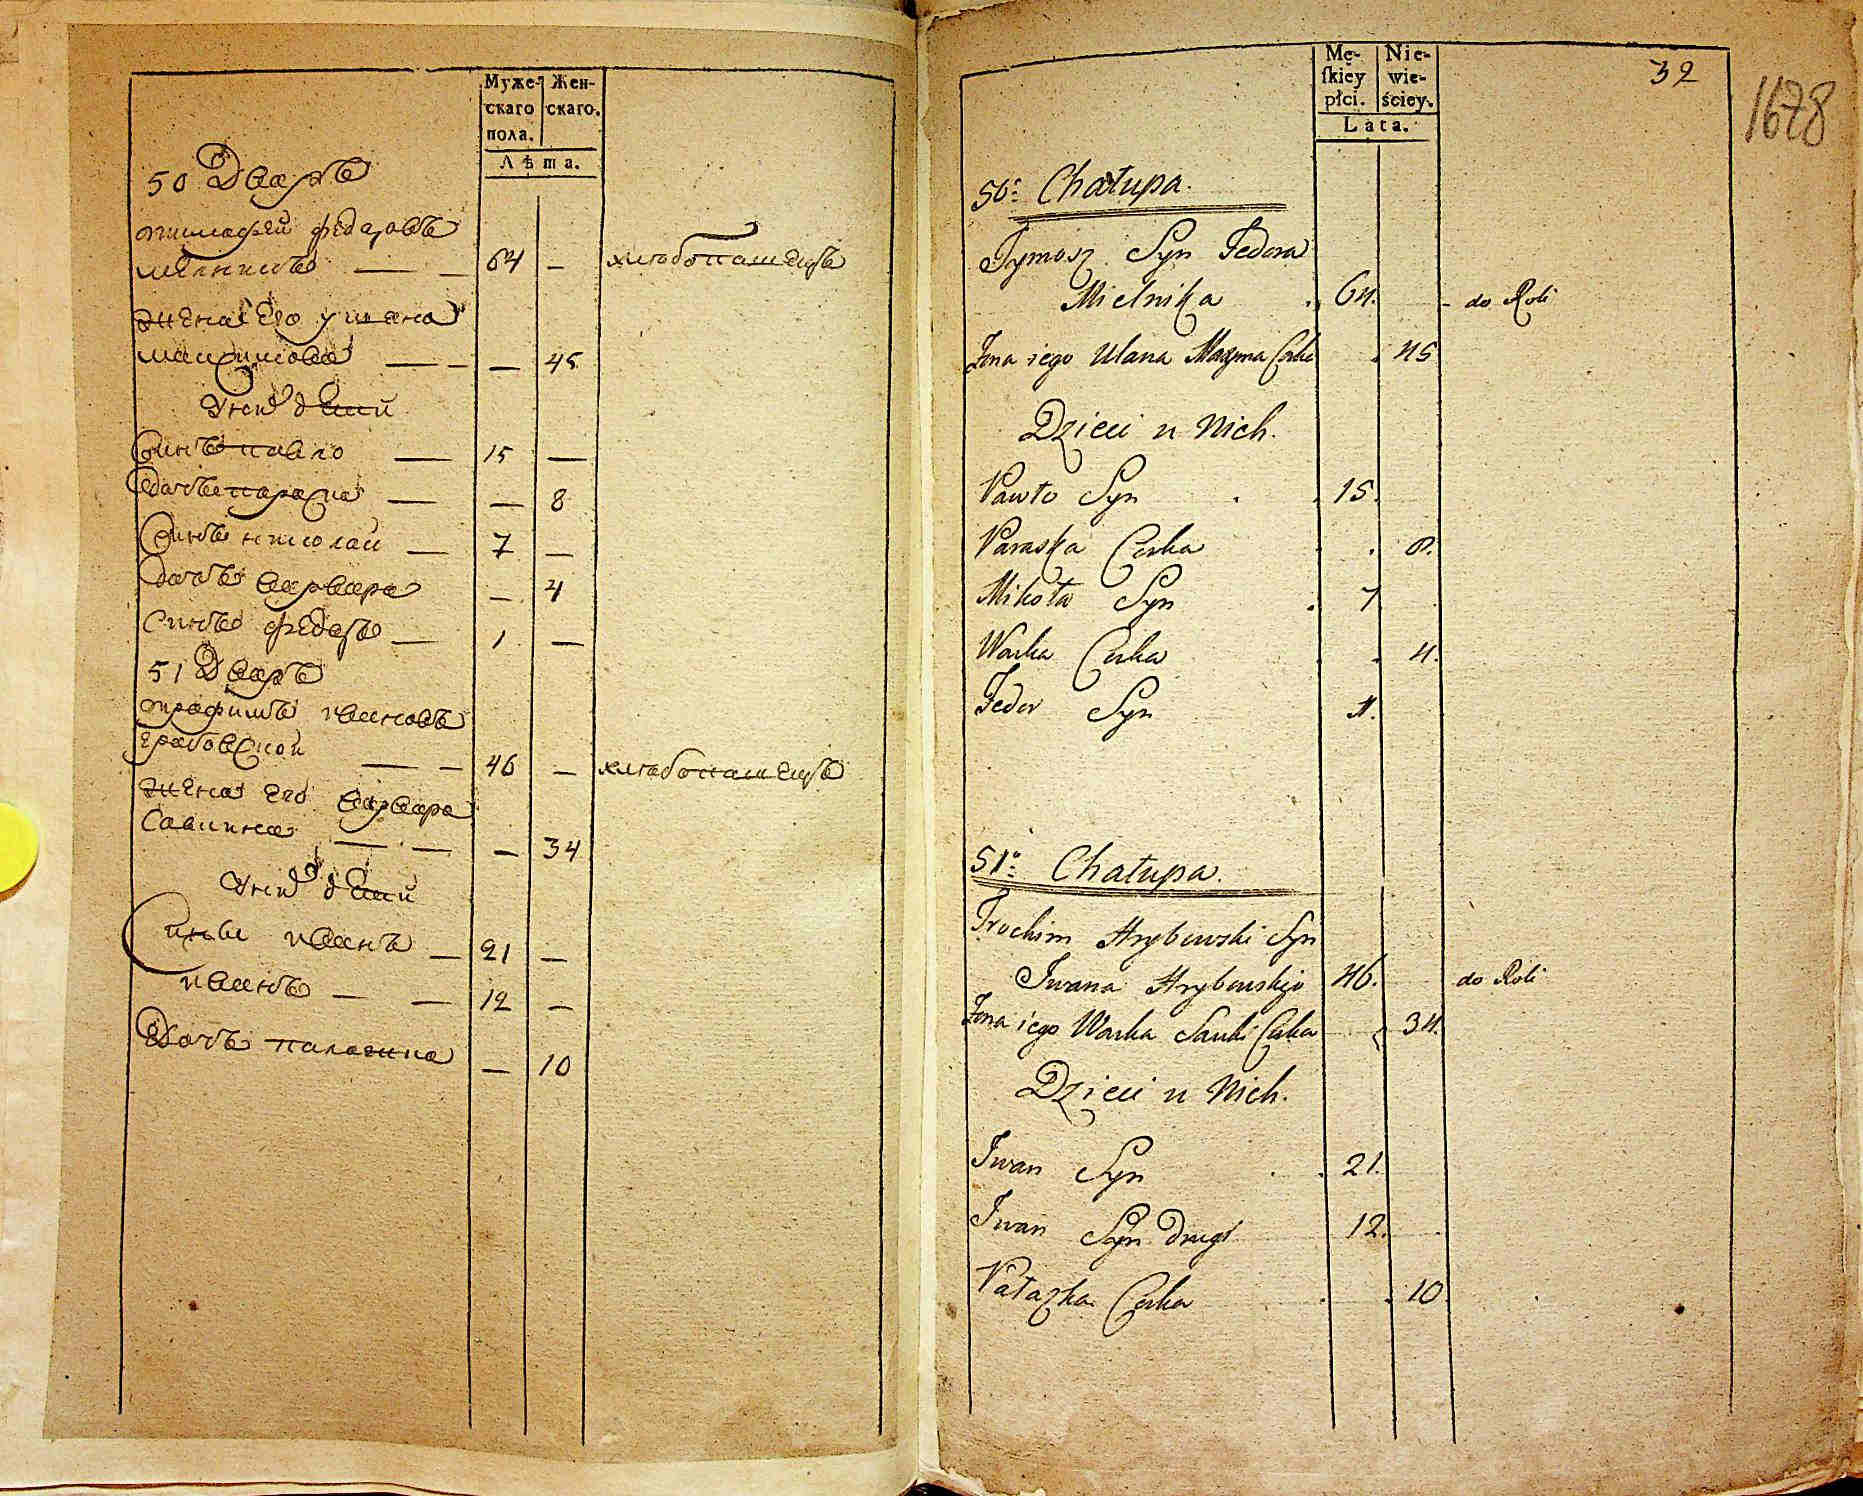 Муже-
скаго
пола.
Жен-
скаго.
Лѣта.
50 Дваръ
тимафей федаровъ
мелникъ — — 64 — хлѣбопашецъ
жена его уляна
максимова — — — 45
У них детей
Синъ павло — 15 —
дочь параска — — 8
Синъ николай — 7 —
дочь варвара — 4
Синъ федоръ — 1 —
51 Дваръ
трафимъ ивановъ
грабовской — — 46 — хлѣбопашецъ
жена его варвара
Савина — — — 34
У них детей
Сины иванъ — 21 —
иванъ — — 12 —
Дочь палажка — 10
Mę-
skiey
płci.
Nie-
wie-
ściey.
Lata.
32
1678
50a Chałupa.
Tymosz Syn Fedora
Mielnika . 64. - do Roli
Żona iego Ulana Maxyma Corka . 45
Dzieci u Nich.
Pawło Syn . . 15.
Paraska Corka . . 8.
Mikoła Syn . 7
Warka Corka . . 4.
Fedor Syn 1.
51a Chałupa.
Trochim Hrybowski Syn
Iwana Hrybowskiego 46. do Roli
Żona iego Warka Sawki Corka 34.
Dzieci u Nich.
Iwan Syn . . 21.
Iwan Syn drugi 12.
Pałazka Corka . . 10